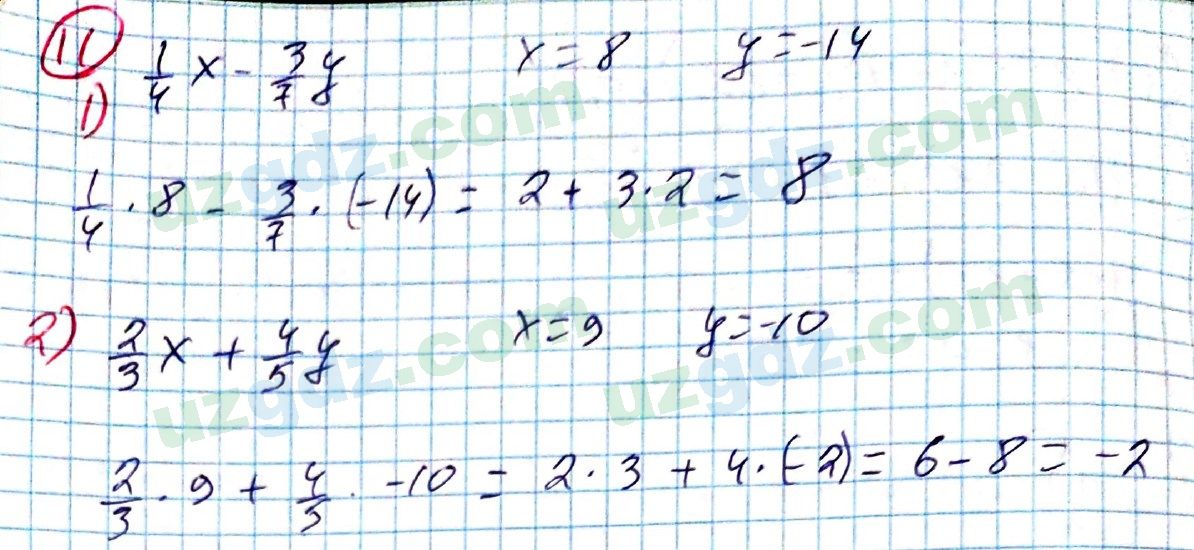 11 1/4 x - 3/7 y x = 8 y = -14
1)
1/4 · 8 - 3/7 · (-14) = 2 + 3 · 2 = 8
2) 2/3 x + 4/5 y x = 9 y = -10
2/3 · 9 + 4/5 · -10 = 2 · 3 + 4 · (-2) = 6 - 8 = -2
uzgdz.com
uzgdz.com
uzgdz.com
uzgdz.com